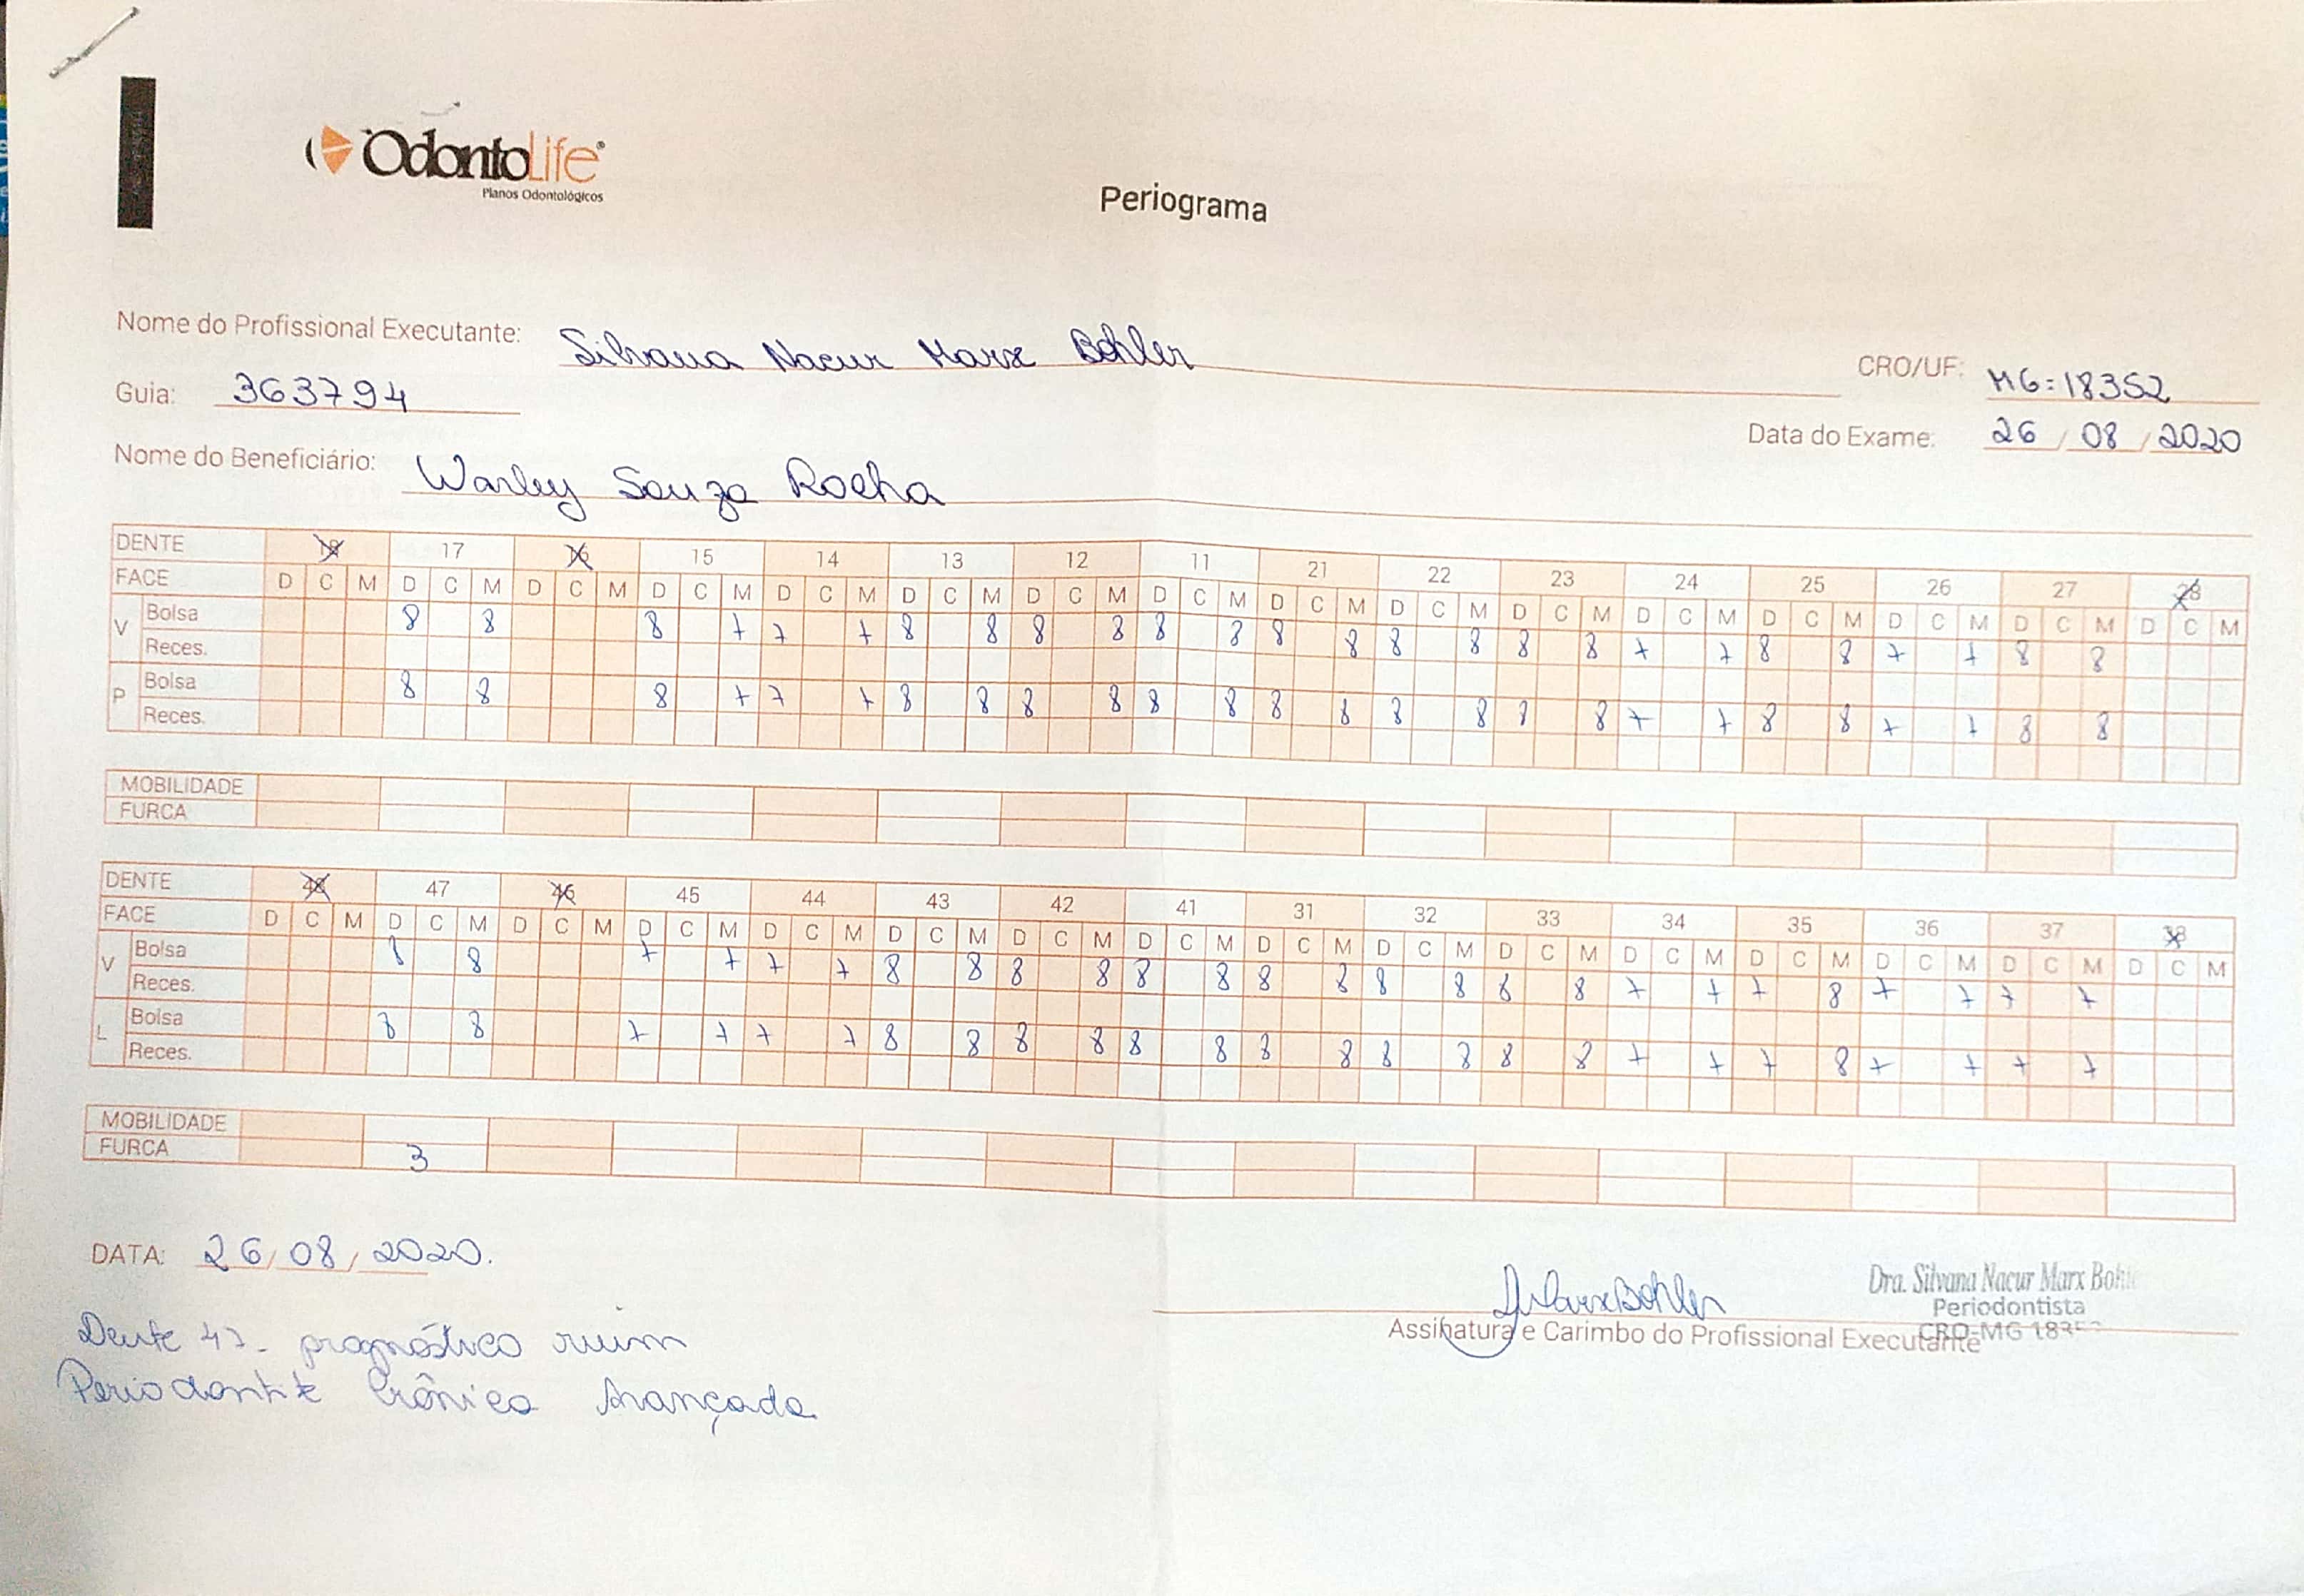 OdontoLife®
Planos Odontológicos
Periograma
Nome do Profissional Executante: Silvana Nacur Marx Bohler
CRO/UF: MG:18352
Guia: 363794
Data do Exame: 26 / 08 / 2020
Nome do Beneficiário: Warley Souza Rocha
DENTE 18 17 16 15 14 13 12 11 21 22 23 24 25 26 27 28
FACE D C M D C M D C M D C M D C M D C M D C M D C M D C M D C M D C M D C M D C M D C M D C M D C M
V Bolsa 8 8 8 7 7 7 8 8 8 8 8 8 8 8 8 8 8 8 7 7 8 8 7 7 8 8
Reces.
P Bolsa 8 8 8 7 7 7 8 8 8 8 8 8 8 8 8 8 8 8 7 7 8 8 7 7 8 8
Reces.
MOBILIDADE
FURCA
DENTE 48 47 46 45 44 43 42 41 31 32 33 34 35 36 37 38
FACE D C M D C M D C M D C M D C M D C M D C M D C M D C M D C M D C M D C M D C M D C M D C M D C M
V Bolsa 8 8 7 7 7 7 8 8 8 8 8 8 8 8 8 8 8 8 7 7 7 8 7 7 7 7
Reces.
L Bolsa 8 8 7 7 7 7 8 8 8 8 8 8 8 8 8 8 8 8 7 7 7 8 7 7 7 7
Reces.
MOBILIDADE
FURCA 3
DATA: 26 / 08 / 2020.
Dra. Silvana Nacur Marx Bohle
Periodontista
CRO-MG 18352
Assinatura e Carimbo do Profissional Executante
Dente 47- prognóstico ruim
Periodontite Crônica Avançada